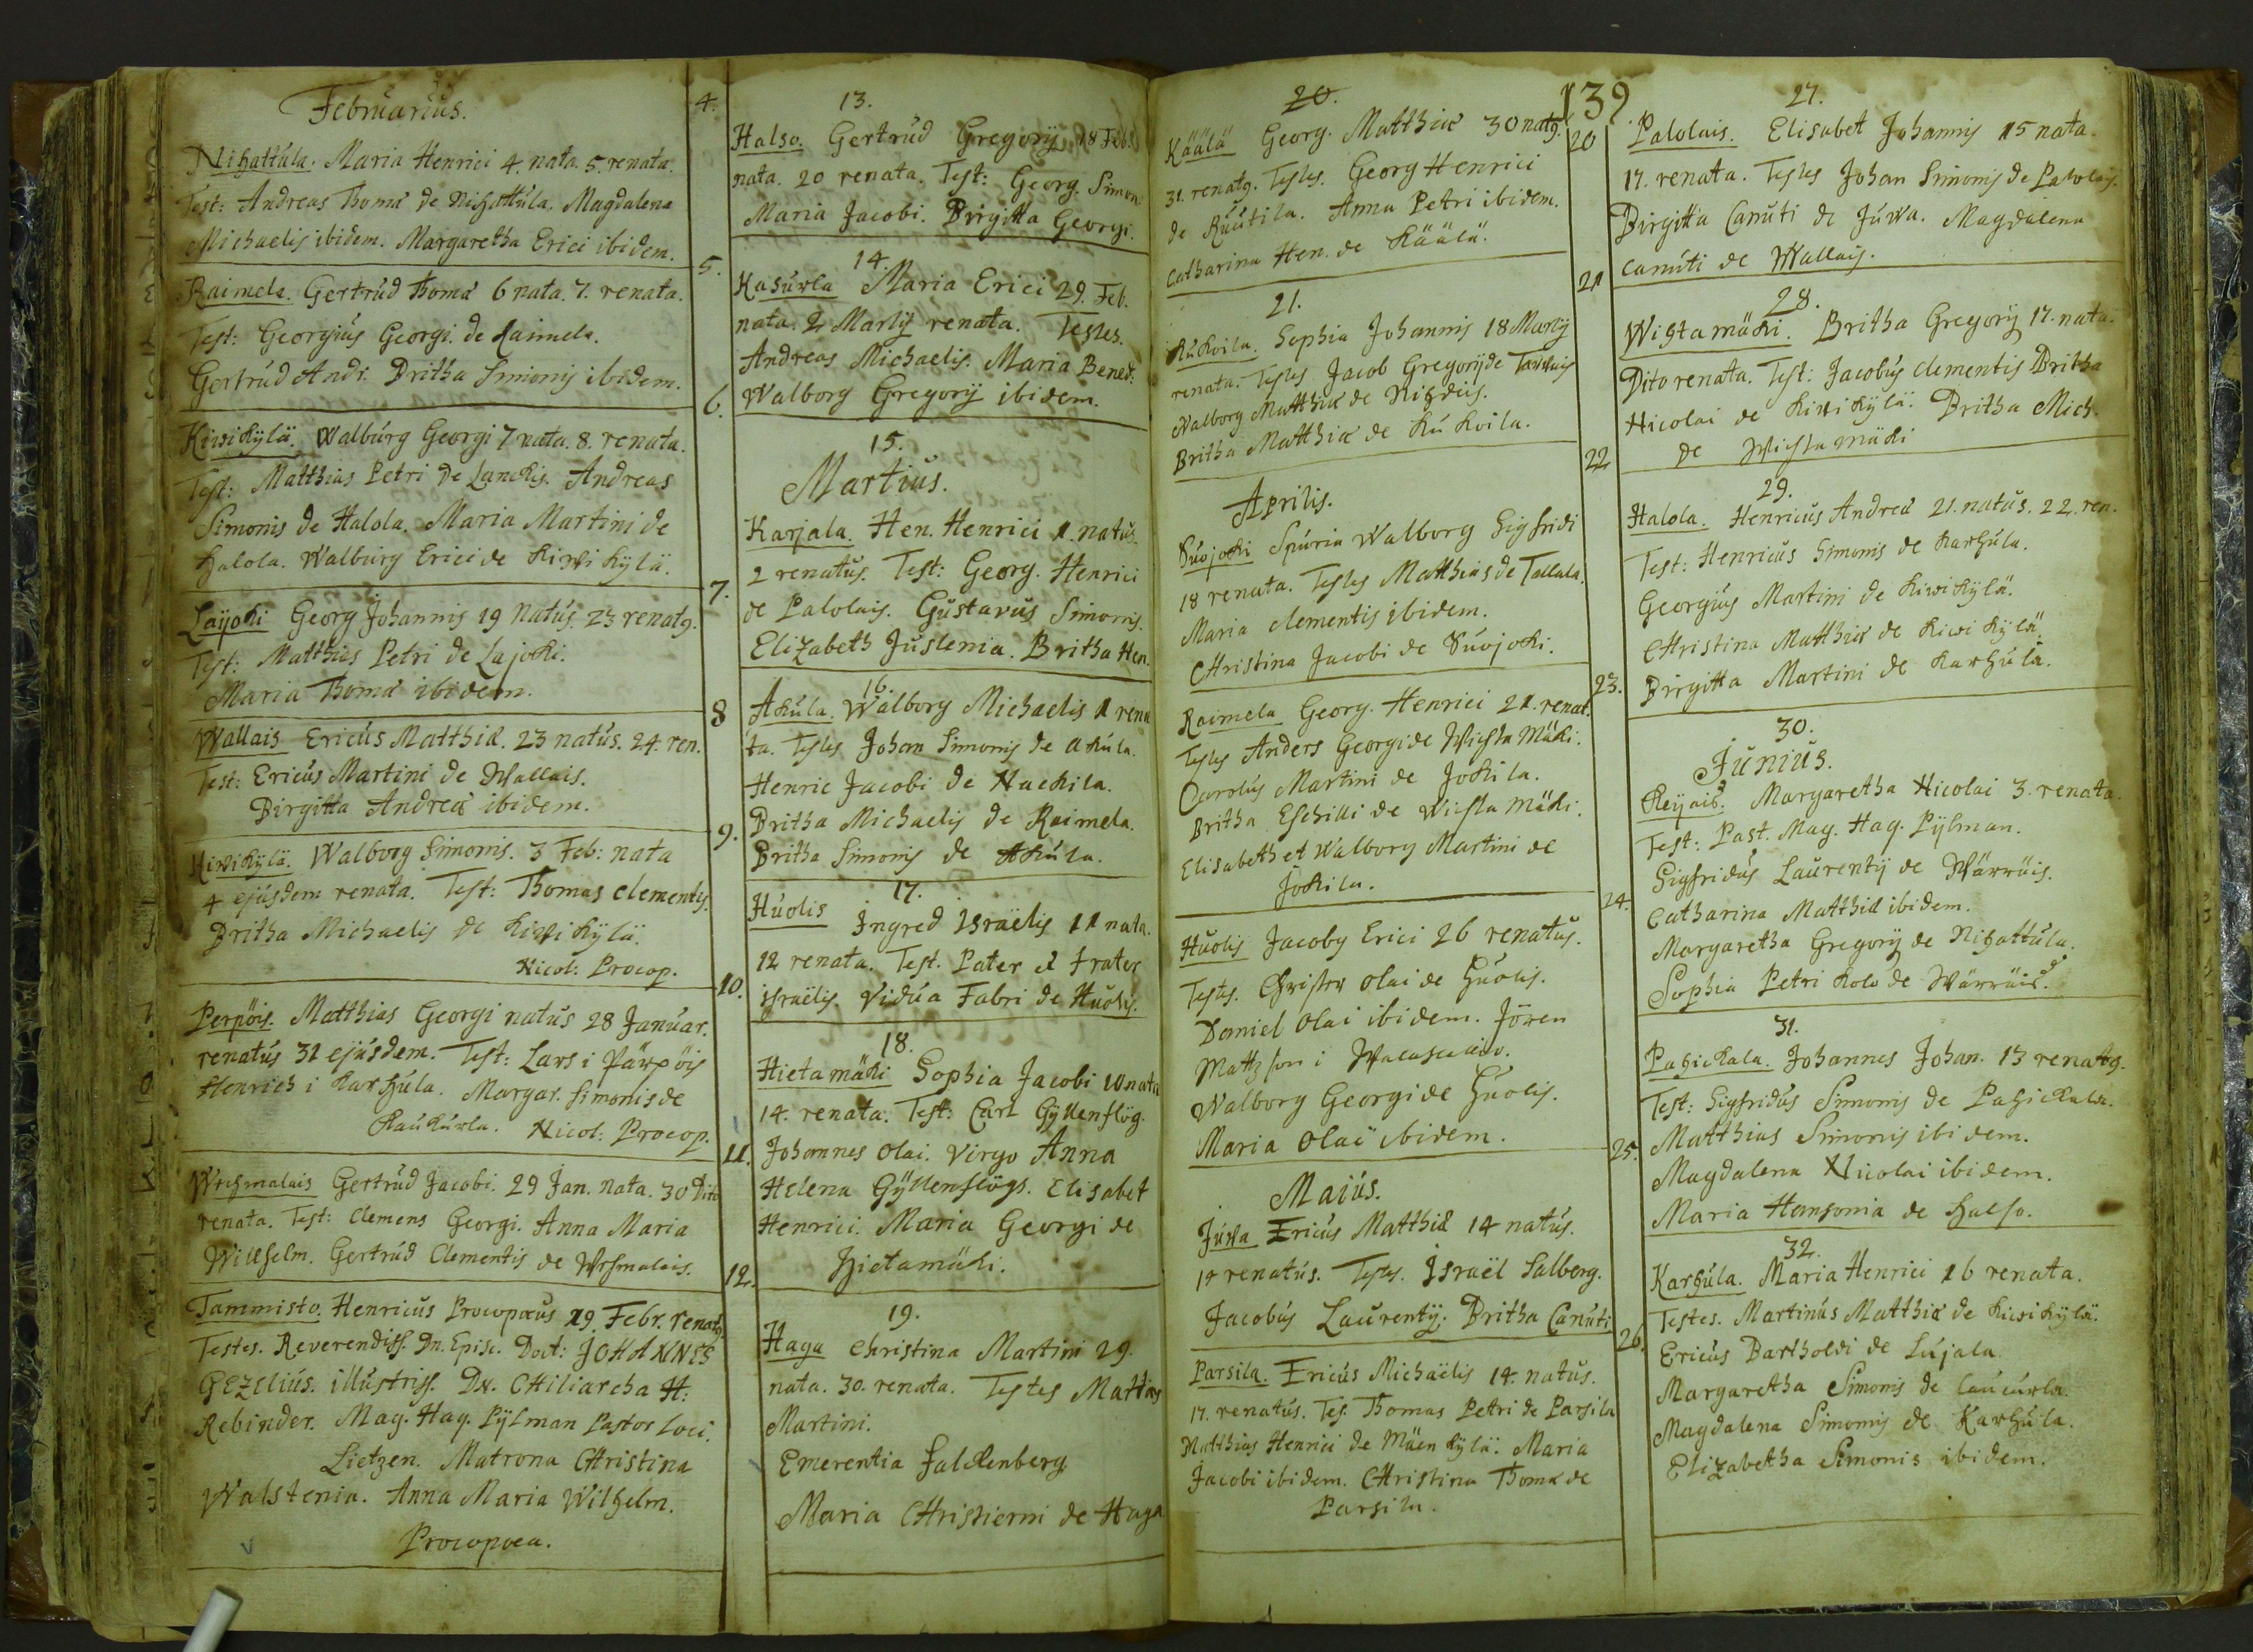 Februarius.
4.
Nihattula. Maria Henrici 4. nata. 5. renata.
Test: Andreas Thomæ de Nihattula. Magdalena
Michaelis ibidem. Margaretha Erici ibidem.
5.
Raimela. Gertrud Thomæ 6 nata. 7. renata.
Test: Georgius Georgi. de Raimela.
Gertrud Andr. Britha Simonis ibidem.
6.
Kiwikylä. Walburg Georgi 7 nata. 8. renata.
Test: Matthias Petri de Lanckis. Andreas
Simonis de Halola. Maria Martini de
Halola. Walburg Erici de Kiwi Kylä.
7.
Laijoki Georg Johannis 19 Natus. 23 renatg.
Test: Matthias Petri de Lajoki.
Maria Thomæ ibidem.
8
Wallais Ericus Matthiæ. 23 natus. 24. ren.
Test: Ericus Martini de Wallais.
Birgitta Andreæ ibidem.
9.
Kiwikylä. Walborg Simonis. 3 Feb: nata
4 ejusdem renata. Test: Thomas Clementis.
Britha Michaelis de Kiwikylä.
Nicol: Procop.
10.
Perpöis. Matthias Georgi natus 28 Januar.
renatus 31 ejusdem. Test: Lars i Pärpöis
Henrich i Karhula. Margar. Simonis de
Kaukurla. Nicol: Procop.
11.
Wehmalais Gertrud Jacobi. 29 Jan. nata. 30 Dito
renata. Test: Clemens Georgi. Anna Maria
Willhelm. Gertrud Clementis de Wehmalais.
12.
Tammisto. Henricus Procopæus 19 Febr. renatg
Testes. Reverendiss. Dn. Episc. Doct: JOHANNES
GEZELIUS. illustriss. Dn. CHiliarcha H.
Rebinder. Mag. Hag. Pijlman Pastor Loci.
Lietzen. Matrona CHristina
Walstenia. Anna Maria Wilhelm.
Procopoea.
13.
Halso. Gertrud Gregorij 18 Feb.
nata. 20 renata. Test: Georg. Simon
Maria Jacobi. Birgitta Georgi.
14.
Kasurla Maria Erici 29. Feb.
nata. 2 Martij renata. Testes.
Andreas Michaelis. Maria Bened:
Walborg Gregorij ibidem.
15.
Martius.
Karjala. Hen. Henrici 1. natus.
2 renatus. Test: Georg. Henrici
de Palolais. Gustavus Simonis.
Elizabeth Juslenia. Britha Hen.
16.
Akula. Walborg Michaelis 1 rena
ta. Testes Johan Simonis de Akula.
Henric Jacobi de Nackila.
Britha Michaelis de Raimela.
Britha Simonis de Akula.
17.
Huolis Ingred Israëlis 11 nata.
12 renata. Test. Pater et frater
israëlis. Vidua Fabri de Huolis.
18.
Hietamäki Sophia Jacobi 10 nata
14. renata. Test: Carl Gyllenflög.
Johannes Olai. Virgo Anna
Helena Gyllenflögs. Elisabet
Henrici. Maria Georgi de
Hietamäki.
19.
Haga Christina Martini 29.
nata. 30. renata. Testes Matthias
Martini.
Emerentia Falckenberg
Maria CHristierni de Haga
139
20.
Käälä Georg. Matthiæ 30 natg.
31. renatg. Testes. Georg Henrici
de Ruutila. Anna Petri ibidem.
Catharina Hen. de Käälä.
20
21.
Kukoila. Sophia Johannis 18 Martij
renata. Testes Jacob Gregorij de Tarwais
Walborg Matthiæ de Nihdius.
Britha Matthiæ de Kukoila.
21
Aprilis.
22
Suojoki Spuria Walborg Sigfridi
18 renata. Testes Matthias de Tallala.
Maria Clementis ibidem.
CHristina Jacobi de Suojoki.
23.
Raimela Georg. Henrici 21. renat.
Testes Anders Georgi de Wichta Mäki.
Carolus Martini de Jokila.
Britha Eschilli de Wichta Mäki.
Elisabeth et Walborg Martini de
Jokila.
24.
Huolis Jacobg Erici 26 renatus.
Testes. Christer Olai de Huolis.
Daniel Olai ibidem. Jören
Matzson i
Walborg Georgi de Huolis.
Maria Olai ibidem.
25.
Maius.
Juwa Ericus Matthiæ 14 natus.
14 renatus. Testes. Israël Salberg.
Jacobus Laurentij. Britha Canuti
26.
Parsila. Ericus Michaëlis 14. natus.
17. renatus. Tes. Thomas Petri de Parsila
Matthias Henrici de Mäenkylä. Maria
Jacobi ibidem. CHristina Thomæ de
Parsila.
27.
Palolais. Elisabet Johannis 15 nata.
17. renata. Testes Johan Simonis de Palolais.
Birgitta Canuti de Juwa. Magdalena
Canuti de Wallais.
28.
Wihtamäki. Britha Gregorij 17. nata.
Dito renata. Test: Jacobus Clementis Britha
Nicolai de Kiwikylä. Britha Mich.
de Wichtamäki
29.
Halola. Henricus Andreæ 21. natus. 22. ren.
Test: Henricus Simonis de Karhula.
Georgius Martini de Kiwikylä.
CHristina Matthiæ de Kiwi Kylä.
Birgitta Martini de Karhula.
30.
Junius.
Reijais. Margaretha Nicolai 3. renata.
Test: Past. Mag. Hag. Pijlman.
Sigfridus Laurentij de Wärräis.
Catharina Matthiæ ibidem.
Margaretha Gregorij de Nihattula.
Sophia Petri Kolo de Wärräis.
31.
Pahickala. Johannes Johan. 13 renatg.
Test: Sigfridus Simonis de Pahickala.
Matthias Simonis ibidem.
Magdalena Nicolai ibidem.
Maria Hansonia de Halso.
32.
Karhula. Maria Henrici 16 renata.
Testes. Martinus Matthiæ de Kiwikylä.
Ericus Bartholdi de Lujala.
Margaretha Simonis de Caucurla.
Magdalena Simonis de Karhula.
Elizabetha Simonis ibidem.